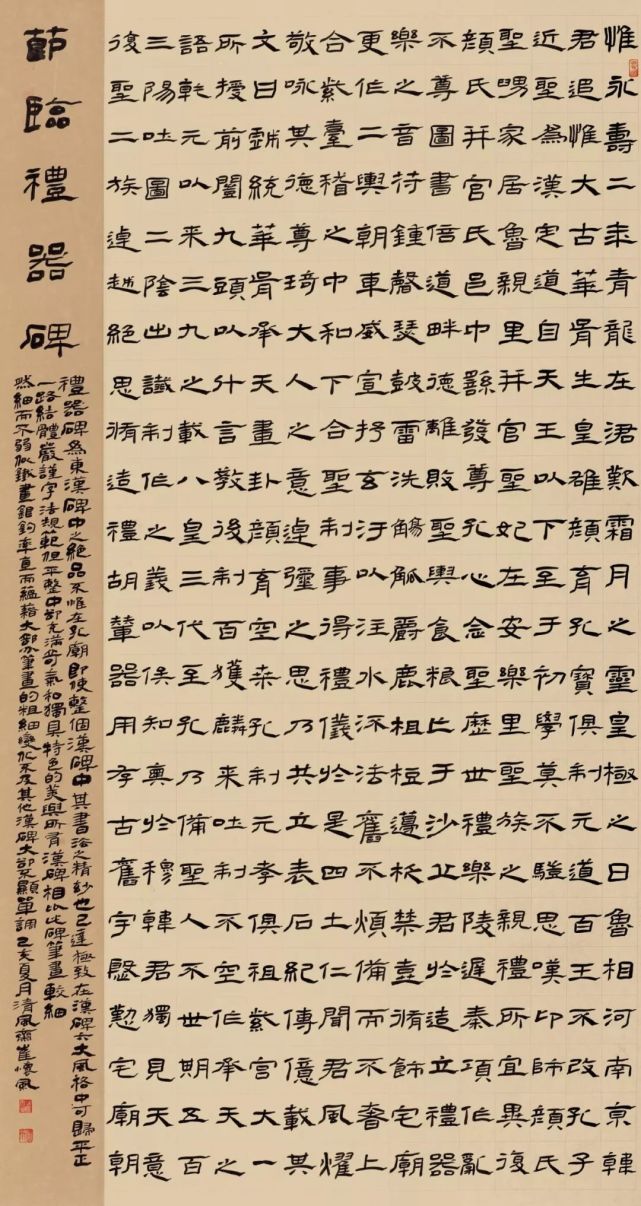 惟永壽二年青龍在涒歎霜月之靈皇極之日魯相河南京韓
君追惟大古華胥生皇雄顏育孔寶俱制元道百王不改孔子
近聖為漢定道自天王以下至于初學莫不騀思嘆卬師顏氏
聖舅家居魯親里并官聖妃在安樂里聖族之親禮所宜異復
顏氏并官氏邑中繇發尊孔心念聖歷世禮樂陵遲秦項作亂
不尊圖書倍道畔德離敗聖輿食糧亡于沙丘君於造立禮器
樂之音苻鍾磬瑟鼓雷洗觴觚爵鹿柤梪籩柉禁壺脩飾宅廟
更作二輿朝車威宣抒玄汙以注水流法舊不煩備而不奢上
合紫臺稽之中和下合聖制事得禮儀於是四土仁聞君風燿
敬咏其德尊琦大人之意逴彌之思乃共立表石紀傳億載其
文曰戲統華胥承天畫卦顏育空桑孔制元孝俱祖紫宮大一
所授前闓九頭以什言教後制百獲麟來吐制不空作承天之
語乾元以來三九之載八皇三代至孔乃備聖人不世期五百
三陽吐圖二陰出讖制作之義以俟知奧於穆韓君獨見天意
復聖二族逴越絕思脩造禮胡輦器用存古舊宇殷懃宅廟朝
節臨禮器碑
禮器碑為東漢碑中之絕品不惟在孔廟即使整個漢碑中其書法之精妙也已達極致在漢碑六大風格中可歸平正
一路結體嚴謹字法規範但平整中卻充滿奇氣和獨具特色的美與所有漢碑相比此碑筆畫較細
然細而不弱似鐵畫銀鉤率直而蘊藉大部分筆畫的粗細變化不及其他漢碑大卻不顯單調己亥夏月清風齋崔懷風